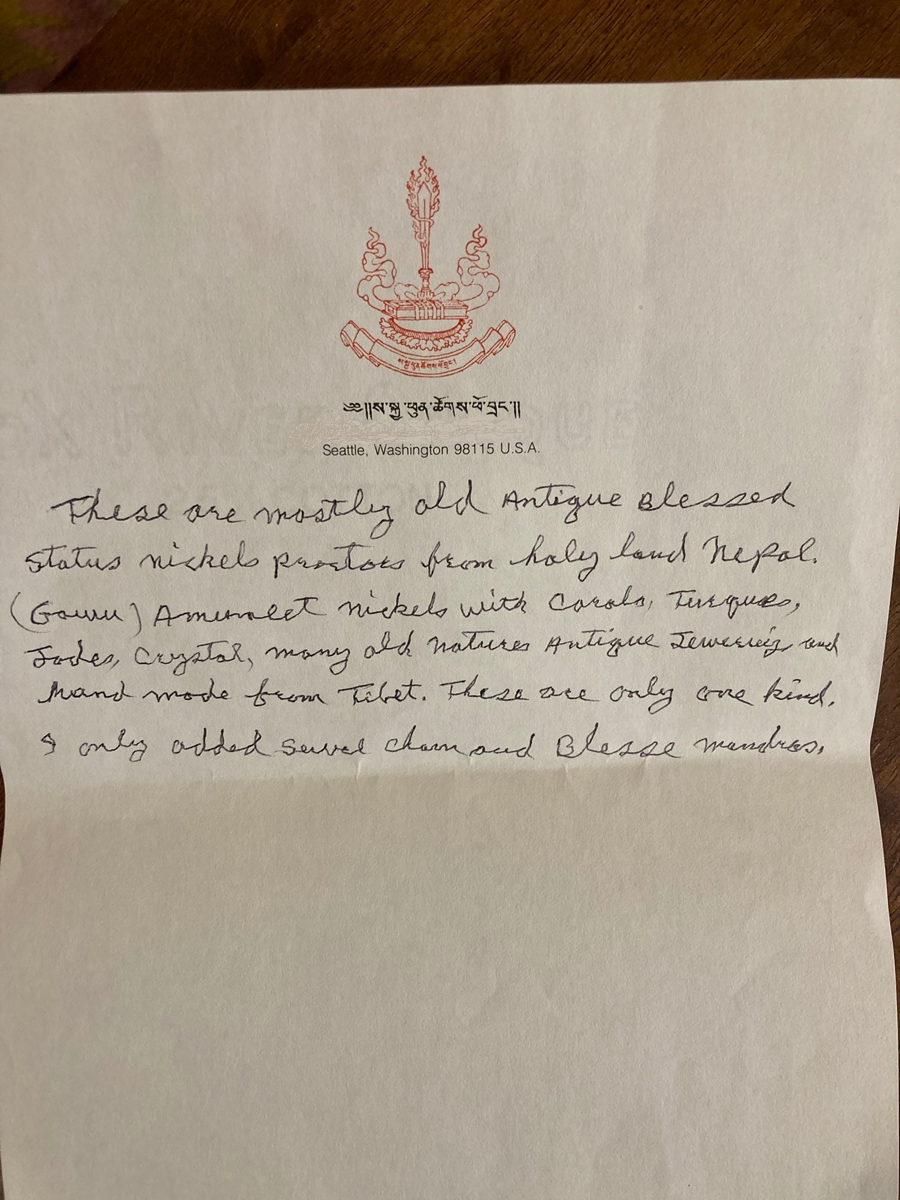 ས་སྐྱ་ཕུན་ཚོགས་ཕོ་བྲང་།
༄༅།།ས་སྐྱ་ཕུན་ཚོགས་ཕོ་བྲང་།།
Seattle, Washington 98115 U.S.A.
These are mostly old Antique Blessed
Status nickels from holy land Nepal.
(Gauu) nickels with Corals, Turques,
Jades, Crystal, many old Natures Antique and
Hand made from Tibet. These are only one kind.
I only added chain and Blesse mandras.